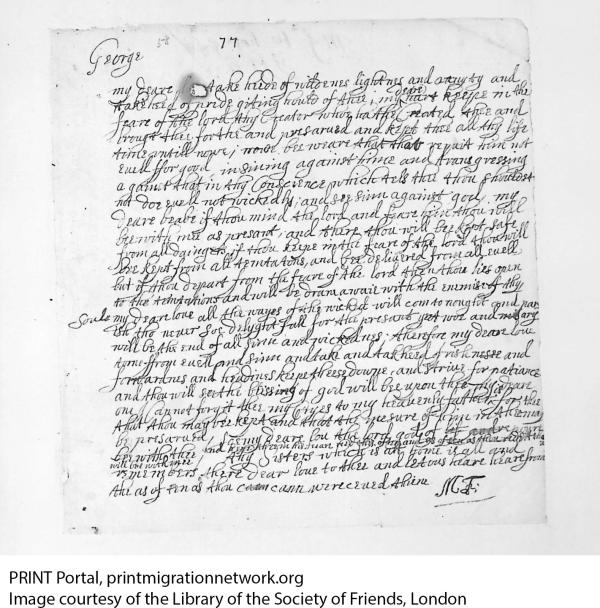 58 77
George
my deare take heede of wildenes lightnes and vanyty and
take heed of pride giting hould of thee; my deare hart keepe in the
feare of the lord thy Creator who hathe Created thee and
brough thee forthe and presarued and kept thee all thy life
time untill now; now bee weare that thou repait him not
evell for good in sining against hime and transgressing
against that in thy Conscience which tells thee thou shouldst
not doe evell nor wickedly; and soe sinn against god, my
deare beabe if thou mind the lord and feare him thou will
bee with mee as present, and there thou will bee kept safe
from all daingers; if thou keepe in the feare of the lord thou will
bee kept from all temtatons, and bee delivered from all evell
but if thou depart from the feare of the lord then thou lies open
to the temtations and will be drawn awaie with the enemie of thy
soule my deare love all the wayes of the wicked will com to nought and
ish tho never soe delyght full for the presant yet woe and
will be the end of all sinn and wickednes; therefore my deare love
turne from evell and sinn and take heed of rishnesse and
forwardnes and headines keepe these downe, and strive for patiance
and thou will see the blessing of god will bee upon thee my deare
one I cannot forget thee my cryes to my heavenly father is for thee
that thou may bee kept and that the measure of him in thee may
be presarued, my deare lou the lord god of
bee with thee and
will bee with mee thy Sisters which is at home is all and
remembers there dear love to thee and let ous heare heare from
the as often as thou can wee receued thine
MF:
PRINT Portal, printmigrationnetwork.org
Image courtesy of the Library of the Society of Friends, London